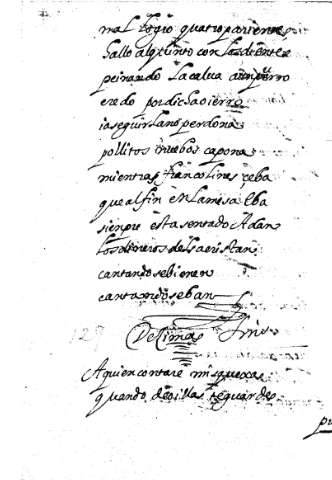 mal logio quatro parientes
hallo alquinto con los dientes
peinando la calua aun perro
eredo por dicha o ierro
ia seguirlano perdona
pollitos nuebos capona
mientras francolines ceba
que al fin en la mesa Eba
sienpre esta sentado Adan
los dineros del sacristan
cantando se bienen
cantando se ban
Decimas
A quien contare mis quexas
quando de oillas te guardes